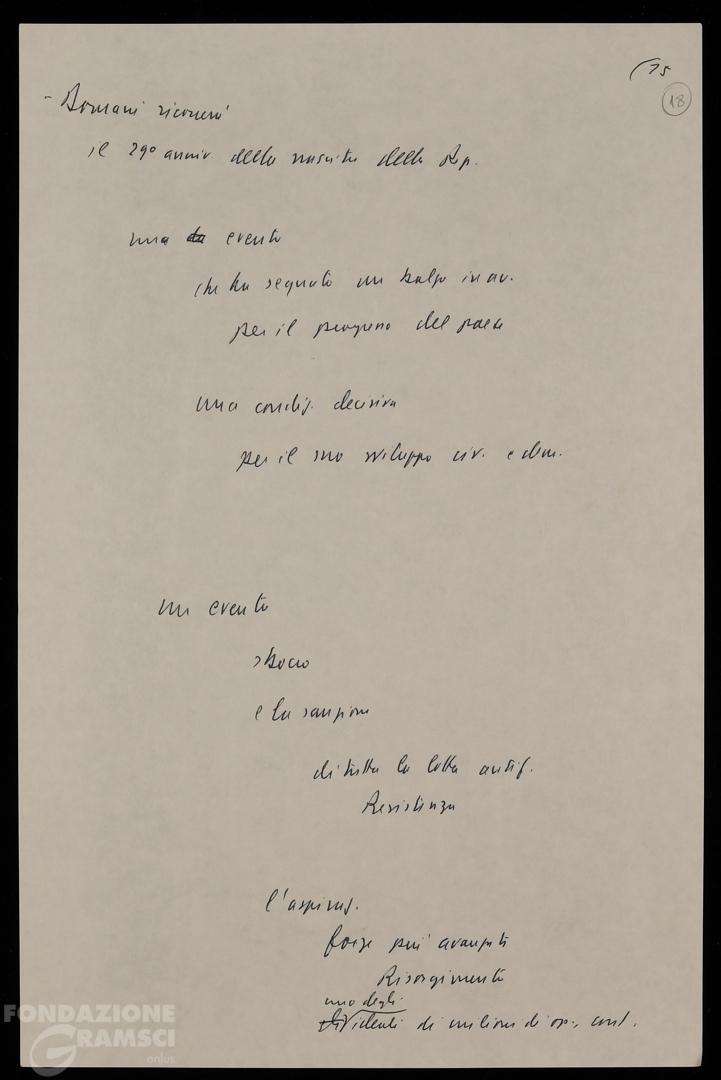 (15
18
- Domani ricorrerà
il 29º anniv. della nascita della Rep.
una da evento
che ha segnato un balzo in av.
per il progresso del paese
una condiz. decisiva
per il suo sviluppo civ. e dem.
un evento
sbocco
e la sanzione
di tutta la lotta antif.
Resistenza
l'aspiraz.
forze più avanzate
Risorgimento
uno degli
ideali di milioni di op., cont.
FONDAZIONE
GRAMSCI
onlus